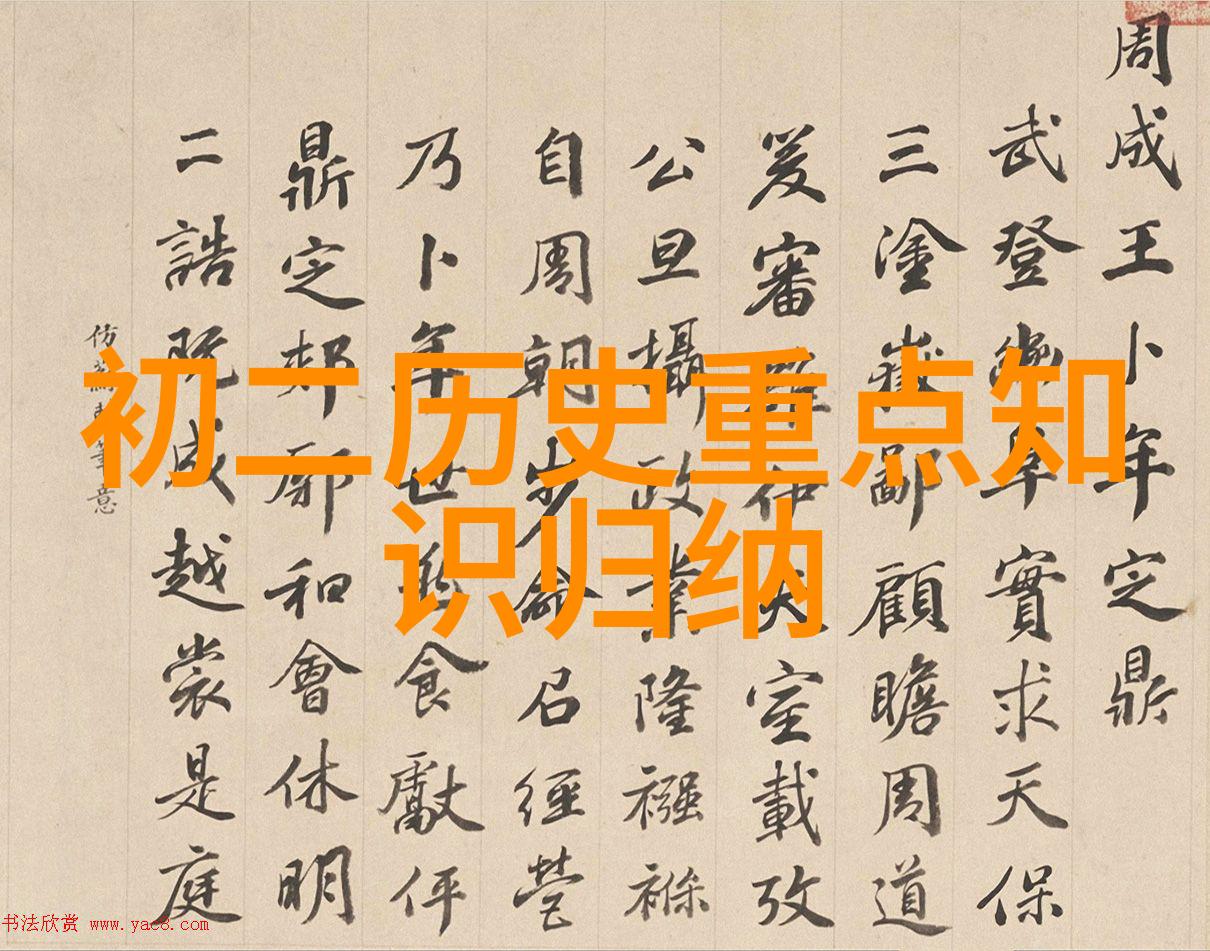 初二历史重点知
识归纳
周成王卜年定鼎
武登豳阜實求天保
三塗嶽鄙顧瞻周道
爰審大室載攷
公旦攝政業隆襁褓
自周朝步命召經營
乃卜年世食獻伻
鼎定郟鄏和會休明
二誥既成越裳是庭
仿筆意
书法欣赏 www.yac8.com